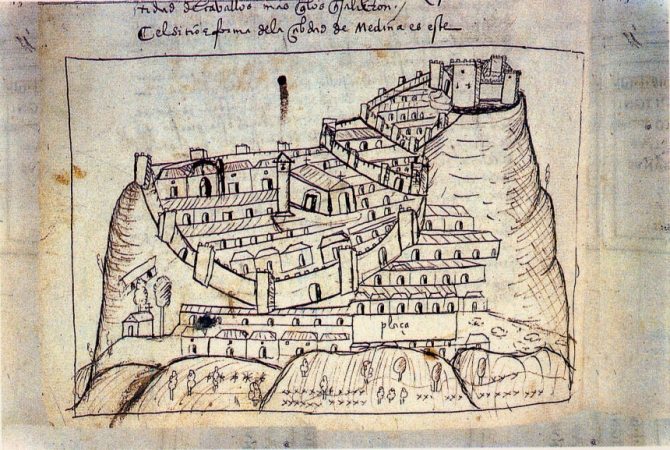 tidad de cavallos mas q̃ los q̃ salieron./
El sitio e forma dela çibdad de Medina es este
plaça